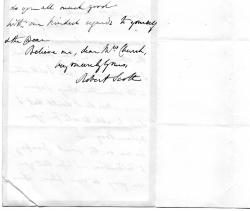 do you all much good
With our kindest regards to yourself
& the Dean
Believe me, dear Mrs Church,
very sincerely yours,
Robert Scott